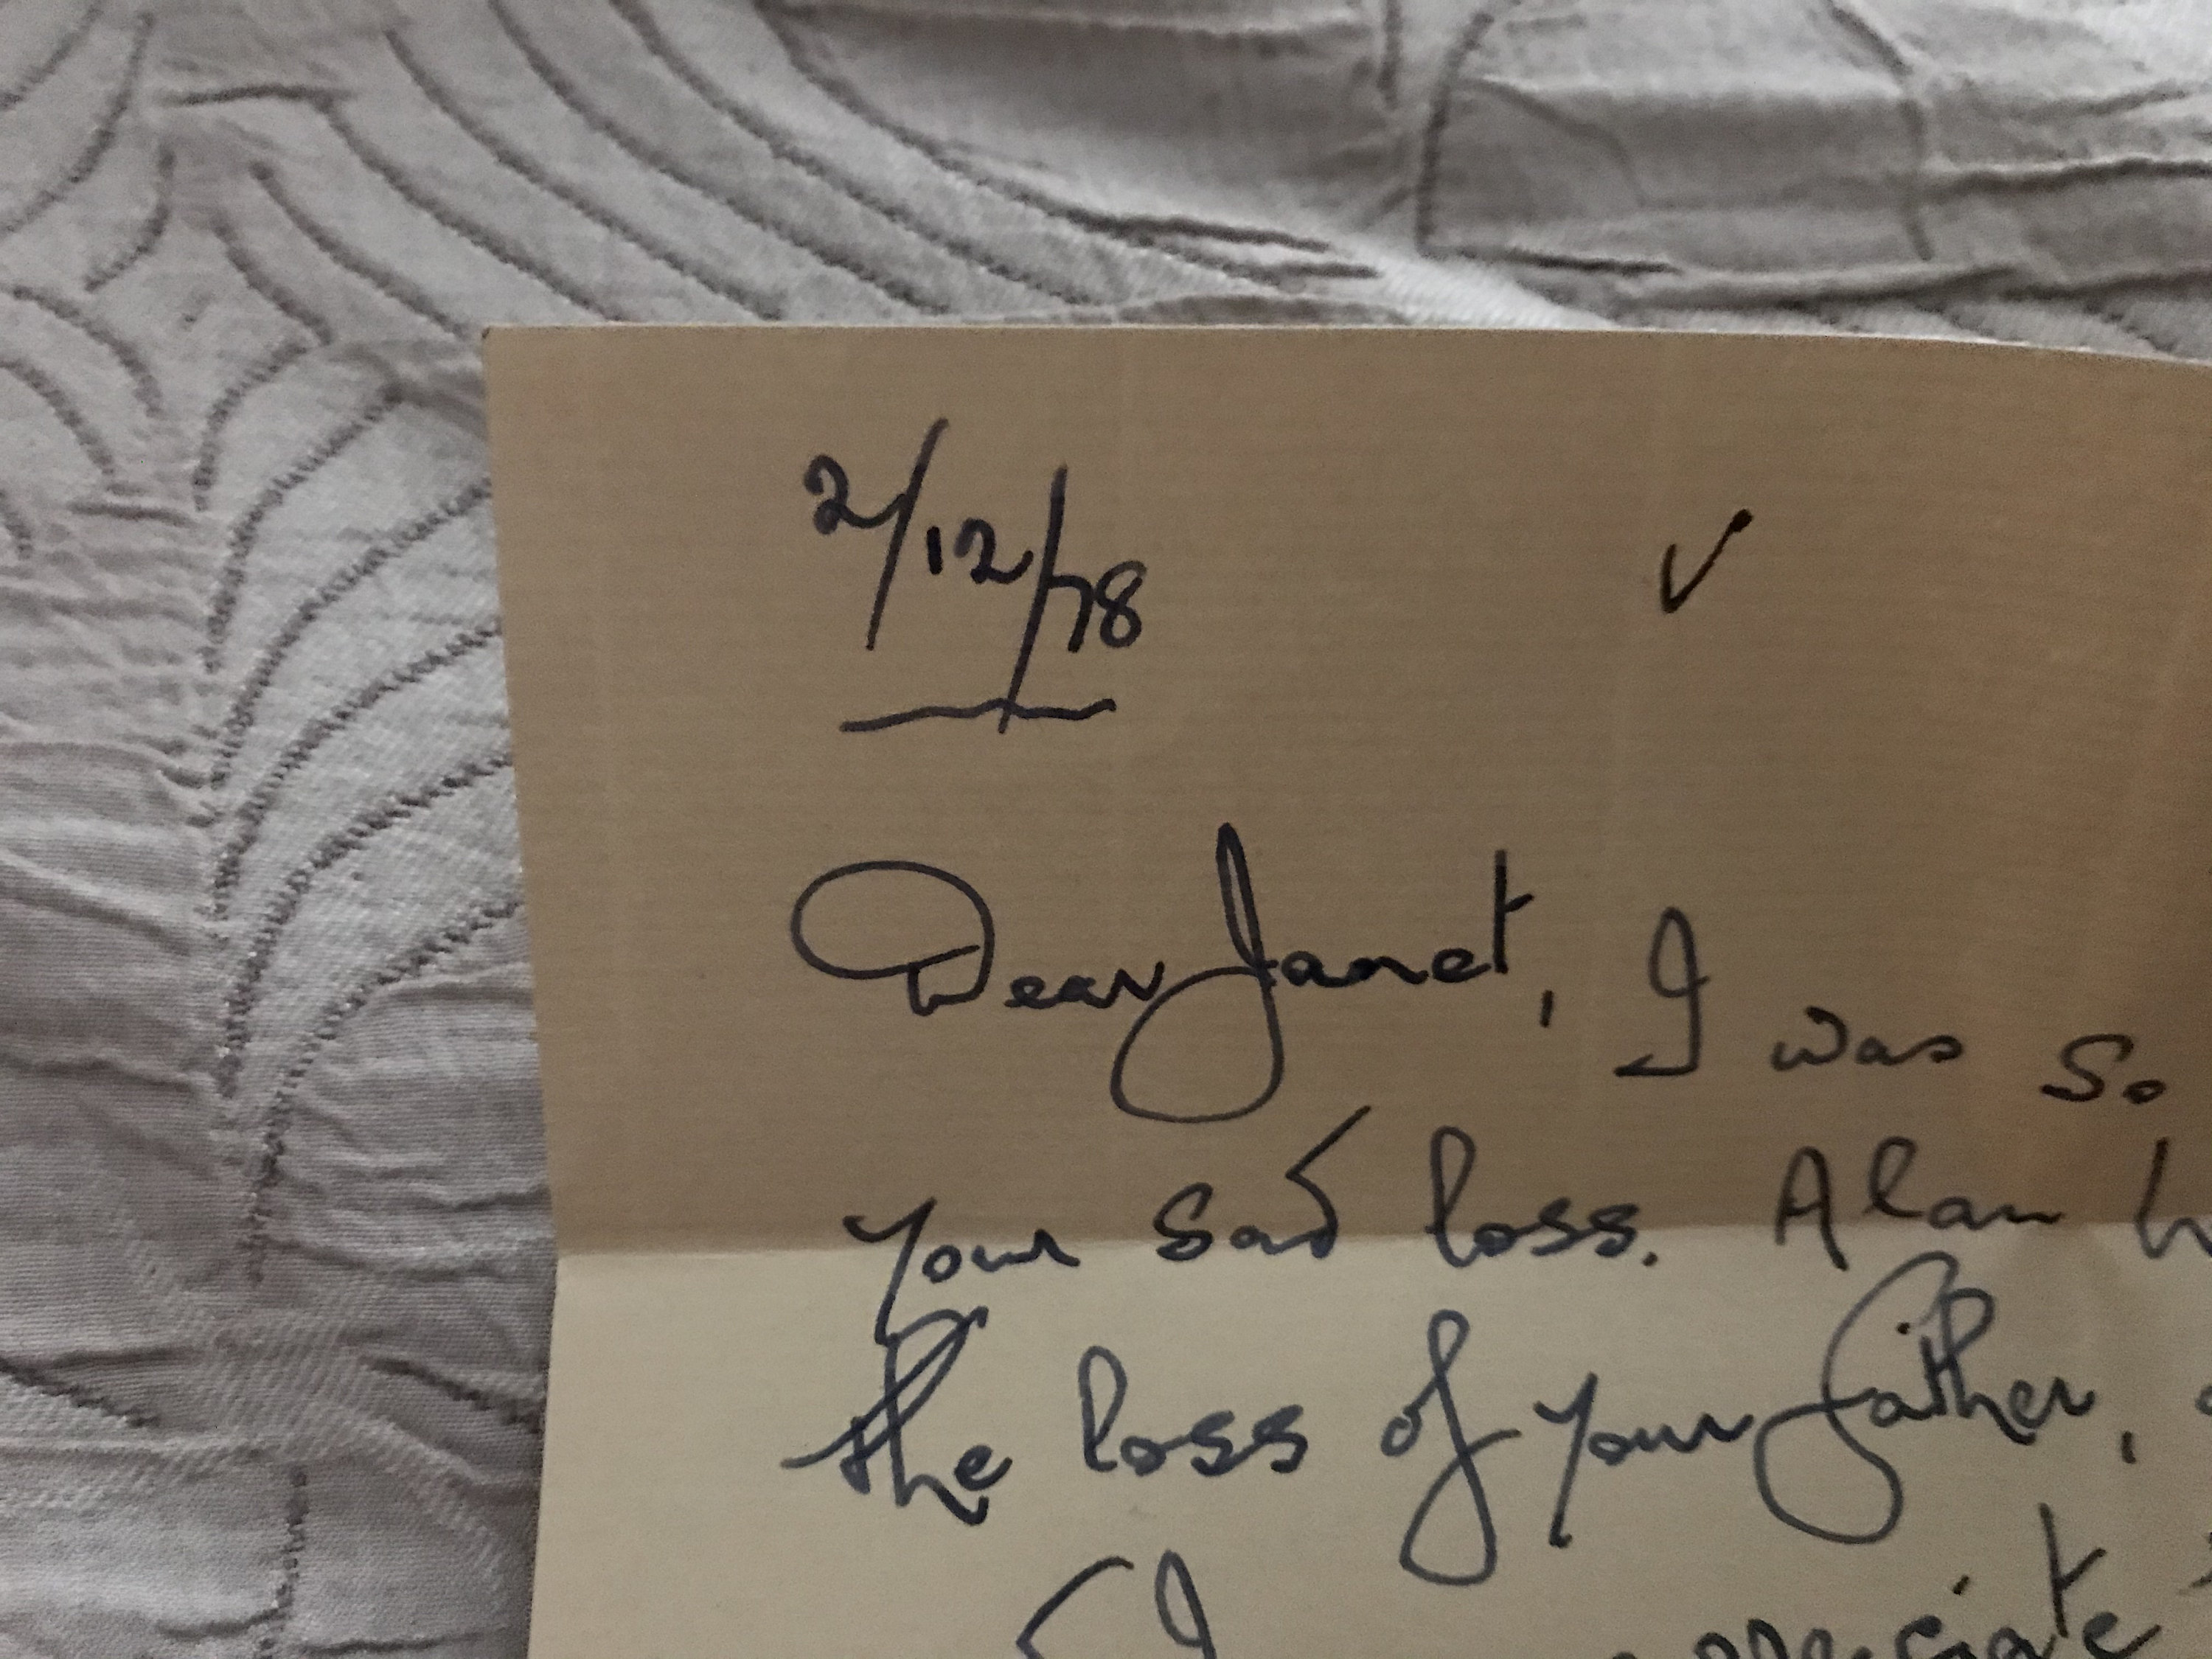 2/12/78 ✓
Dear Janet, I was so
your sad loss. Alan h
the loss of your father,
I appreciate